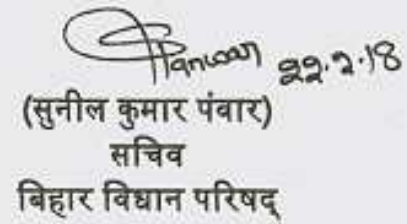 Panwar 22.2.18
(सुनील कुमार पंवार)
सचिव
बिहार विधान परिषद्